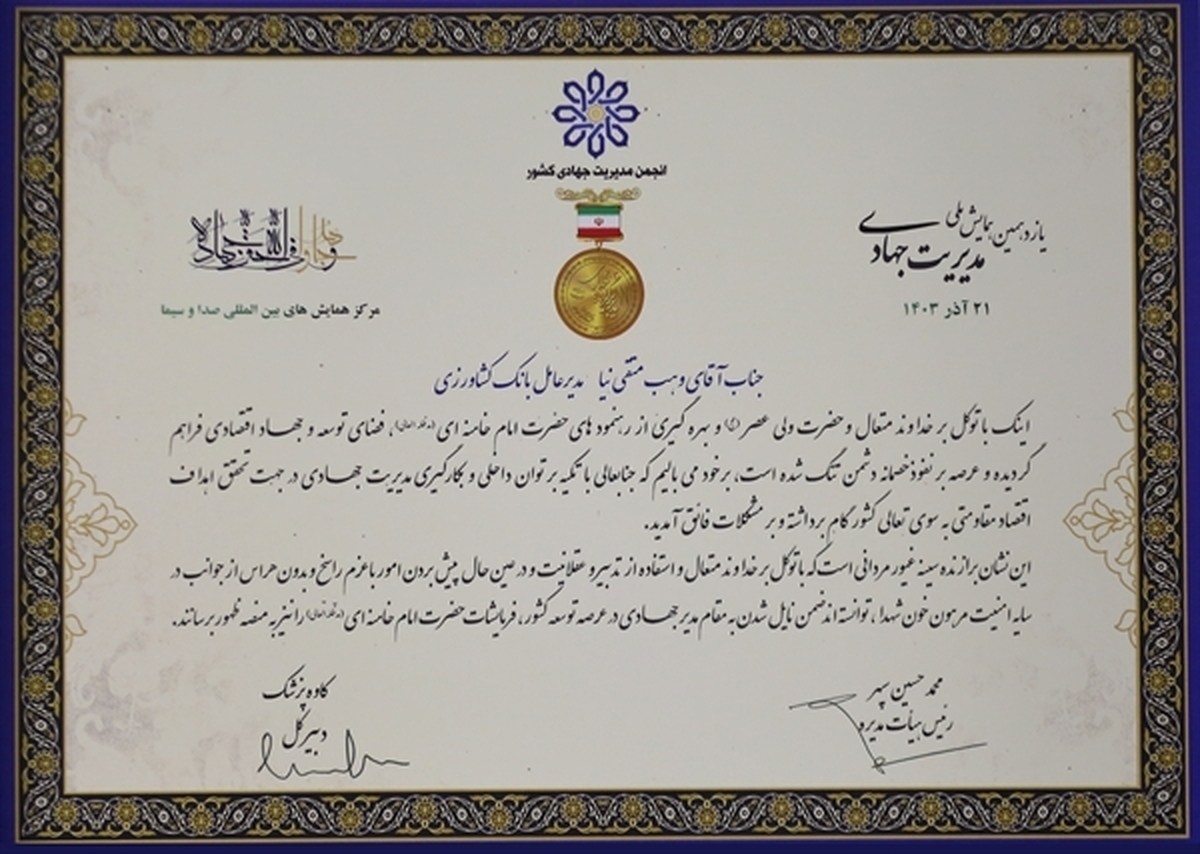 انجمن مدیریت جهادی کشور
یازدهمین همایش ملی
مدیریت جهادی
۲۱ آذر ۱۴۰۳
وجاهدوا فی الله حق جهاده
مرکز همایش های بین المللی صدا و سیما
جناب آقای وهب متقی نیا مدیرعامل بانک کشاورزی
اینک با توکل بر خداوند متعال و حضرت ولی عصر (عج) و بهره گیری از رهنمود های حضرت امام خامنه ای (مدظله العالی)، فضای توسعه و جهاد اقتصادی فراهم
گردیده و عرصه بر نفوذ خصمانه دشمن تنگ شده است، برخود می بالیم که جنابعالی با تکیه بر توان داخلی و بکارگیری مدیریت جهادی در جهت تحقق اهداف
اقتصاد مقاومتی به سوی تعالی کشور گام برداشته و بر مشکلات فائق آمدید.
این نشان برازنده سینه غیور مردانی است که با توکل بر خداوند متعال و استفاده از تدبیر و عقلانیت و در عین حال پیش بردن امور با عزم راسخ و بدون هراس از جوانب در
سایه امنیت مرهون خون شهدا، توانسته اند ضمن نایل شدن به مقام مدیر جهادی در عرصه توسعه کشور، فرمایشات حضرت امام خامنه ای (مدظله العالی) را نیز به منصه ظهور برسانند.
محمد حسین سپهر
رئیس هیأت مدیره
کاوه پزشک
دبیرکل